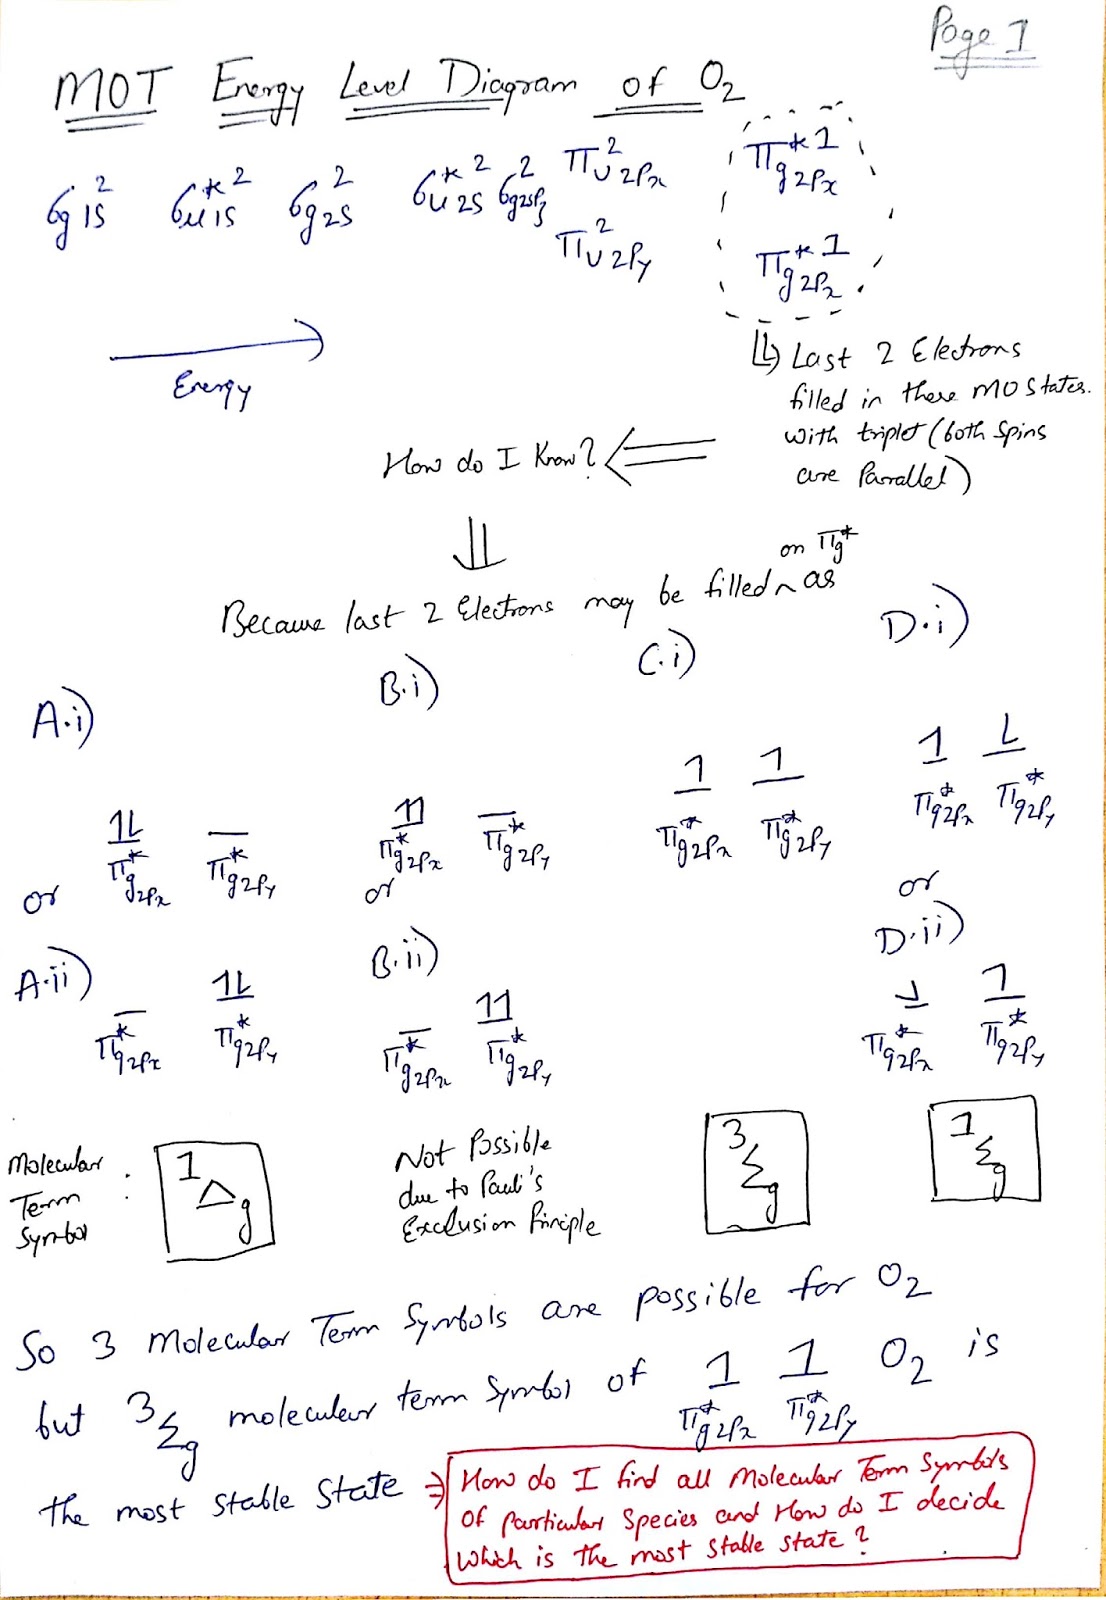 Page 1
MOT Energy Level Diagram of O₂
σg1s² σ*u1s² σg2s² σ*u2s² σg2sp₃² πu²2px π*g¹2px
πu²2py π*g¹2px
Energy
↳ Last 2 Electrons
filled in these MO states.
with triplet (both spins
are Parrallel)
How do I Know? ⇐
⇓
on πg*
Because last 2 Electrons may be filled ^ as
A.i) B.i) C.i) D.i)
1L — 11 — 1 1 1 L
π*g2px π*g2py π*g2px π*g2py π*g2px π*g2py π*g2px π*g2py
or or or
A.ii) B.ii) D.ii)
— 1L — 11 1
π*g2px π*g2py π*g2px π*g2py π*g2px π*g2py
Molecular
Term :
Symbol
¹Δg
Not Possible
due to Pauli's
Exclusion Pinciple
³Σg
¹Σg
So 3 Molecular Term Symbols are possible for O₂
but ³Σg molecular term symbol of 1 1 O₂ is
π*g2px π*g2py
the most stable state ⇒
How do I find all Molecular Term Symbols
of particular Species and How do I decide
which is the most stable state?